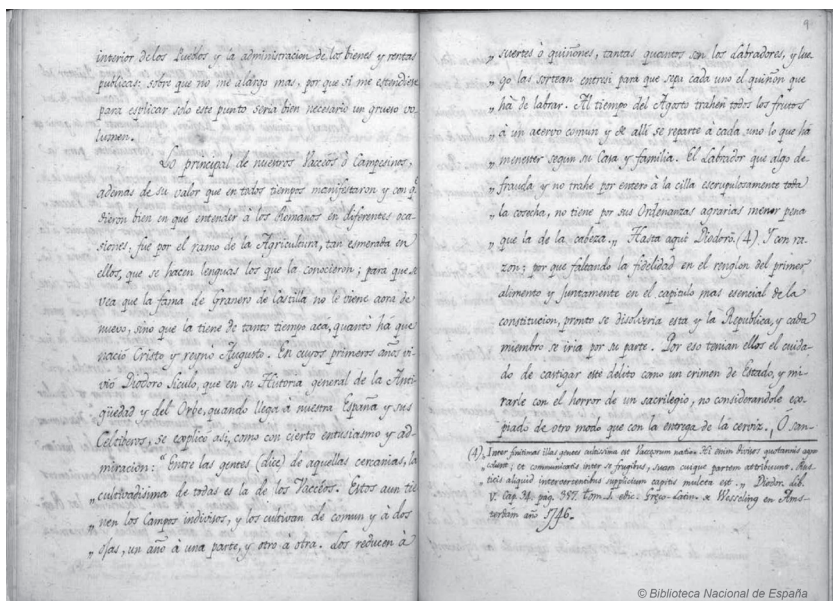 interior de los Pueblos y la administracion de los bienes y rentas
publicas: sobre que no me alargo mas, por que si me estendiese
para esplicar solo este punto seria bien necesario un grueso vo
lumen.
Lo principal de nuestros Vacceos ò Campesinos,
ademas de su valor que en todos tiempos manifestaron y con q.
dieron bien en que entender à los Romanos en diferentes oca
siones, fue por el ramo de la Agricultura, tan esmerada en
ellos, que se hacen lenguas los que la conocieron; para que se
vea que la fama de Granero de Castilla no le viene aora de
nuevo, sino que la tiene de tanto tiempo acá, quanto há que
nació Cristo y reynó Augusto. En cuyos primeros años vi
vió Diodoro Siculo, que en su Historia general de la Anti
güedad y del Orbe, quando llega à nuestra España y sus
Celtiberos, se esplicó asi, como con cierto entusiasmo y ad
miracion: "Entre las gentes (dice) de aquellas cercanias, la
„ cultivadisima de todas es la de los Vaccèos. Estos aun tie
„ nen los Campos indivisos, y los cultivan de comun y à dos
„ ojas, un año à una parte, y otro à otra. Los reducen à
9
„ suertes ò quiñones, tantas quantos son los Labradores, y lue
„ go las sortean entresi para que sepa cada uno el quiñon que
„ hà de labrar. Al tiempo del Agosto trahen todos los frutos
„ à un acervo comun y de alli se reparte à cada uno lo que há
„ menester segun su Casa y familia. El Labrador que algo de
„ frauda y no trahe por entero à la cilla escrupulosamente toda
„ la cosecha, no tiene por sus Ordenanzas agrarias menor pena
„ que la de la cabeza. „ Hasta aqui Diodoro. (4) Y con ra
zon; por que faltando la fidelidad en el renglon del primer
alimento y juntamente en el capitulo mas esencial de la
constitucion, pronto se disolveria esta y la Republica, y cada
miembro se iria por su parte. Por eso tenian ellos el cuida
do de castigar este delito como un crimen de Estado, y mi
rarle con el horror de un sacrilegio, no considerandole ex
piado de otro modo que con la entrega de la cerviz. ¡O san
(4) Inter finitimas illas gentes cultissima est Vaccæorum natio. Hi enim divisos quotannis agros
colunt, et communicatis inter se frugibus, suam cuique partem attribuunt. Rus
ticis aliquid intervertentibus supplicium capitis mulcta est. „ Diodor. lib.
V. Cap. 34. pág. 357. tom. 1. edic. Greco-Latin. de Wesseling en Ams
terdam año 1746.
© Biblioteca Nacional de España